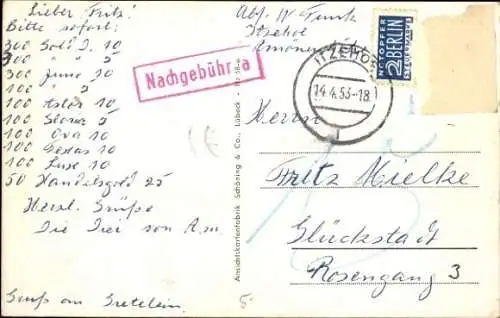 Lieber Fritz!
Bitte sofort:
300 Gold J. 10
300 " " 5
300 Juno 10
100 " 5
100 Astor 10
100 5
100 Ova 10
100 Texas 10
100 Luxe 10
50 Handelsgold 25
Herzl. Grüße
Die Drei von
Gruß an Gretelein.
Nachgebühr a
Abs. W. Funck
Itzehoe
ITZEHOE
14.4.53-18
NOTOPFER
2 BERLIN
STEUERMARKE
Herrn
Fritz Mielke
Glückstadt
Rosengang 3
Ansichtskartenfabrik Schöning & Co., Lübeck
5.